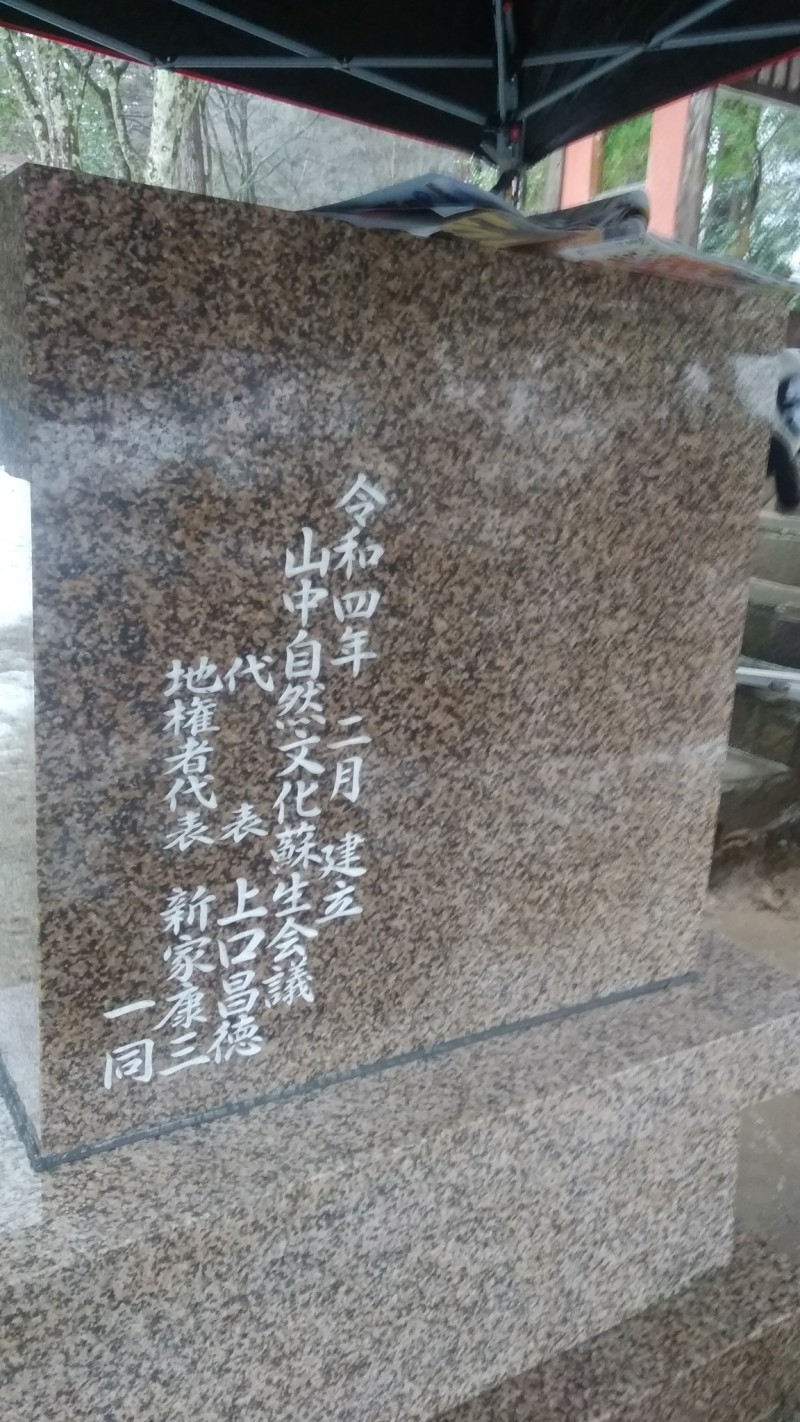 令和四年 二月 建立
山中自然文化蘇生会議
代 表 上口昌徳
地権者代表 新家康三
一同